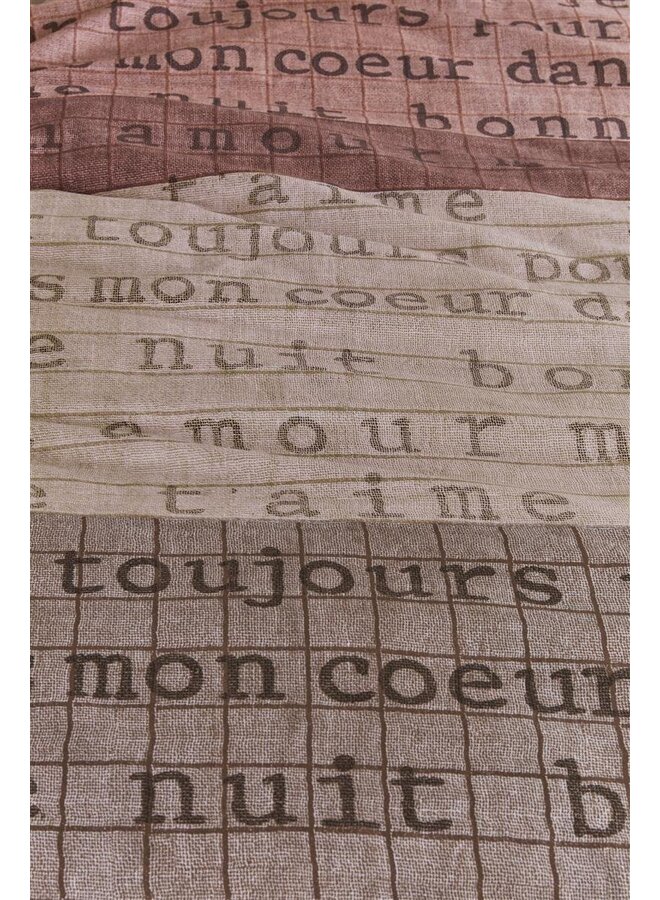 toujours
mon coeur dan
nuit bonn
amour
t'aime
toujours pou
s mon coeur da
e nuit bon
amour m
e t'aime
toujours
s mon coeur
e nuit b